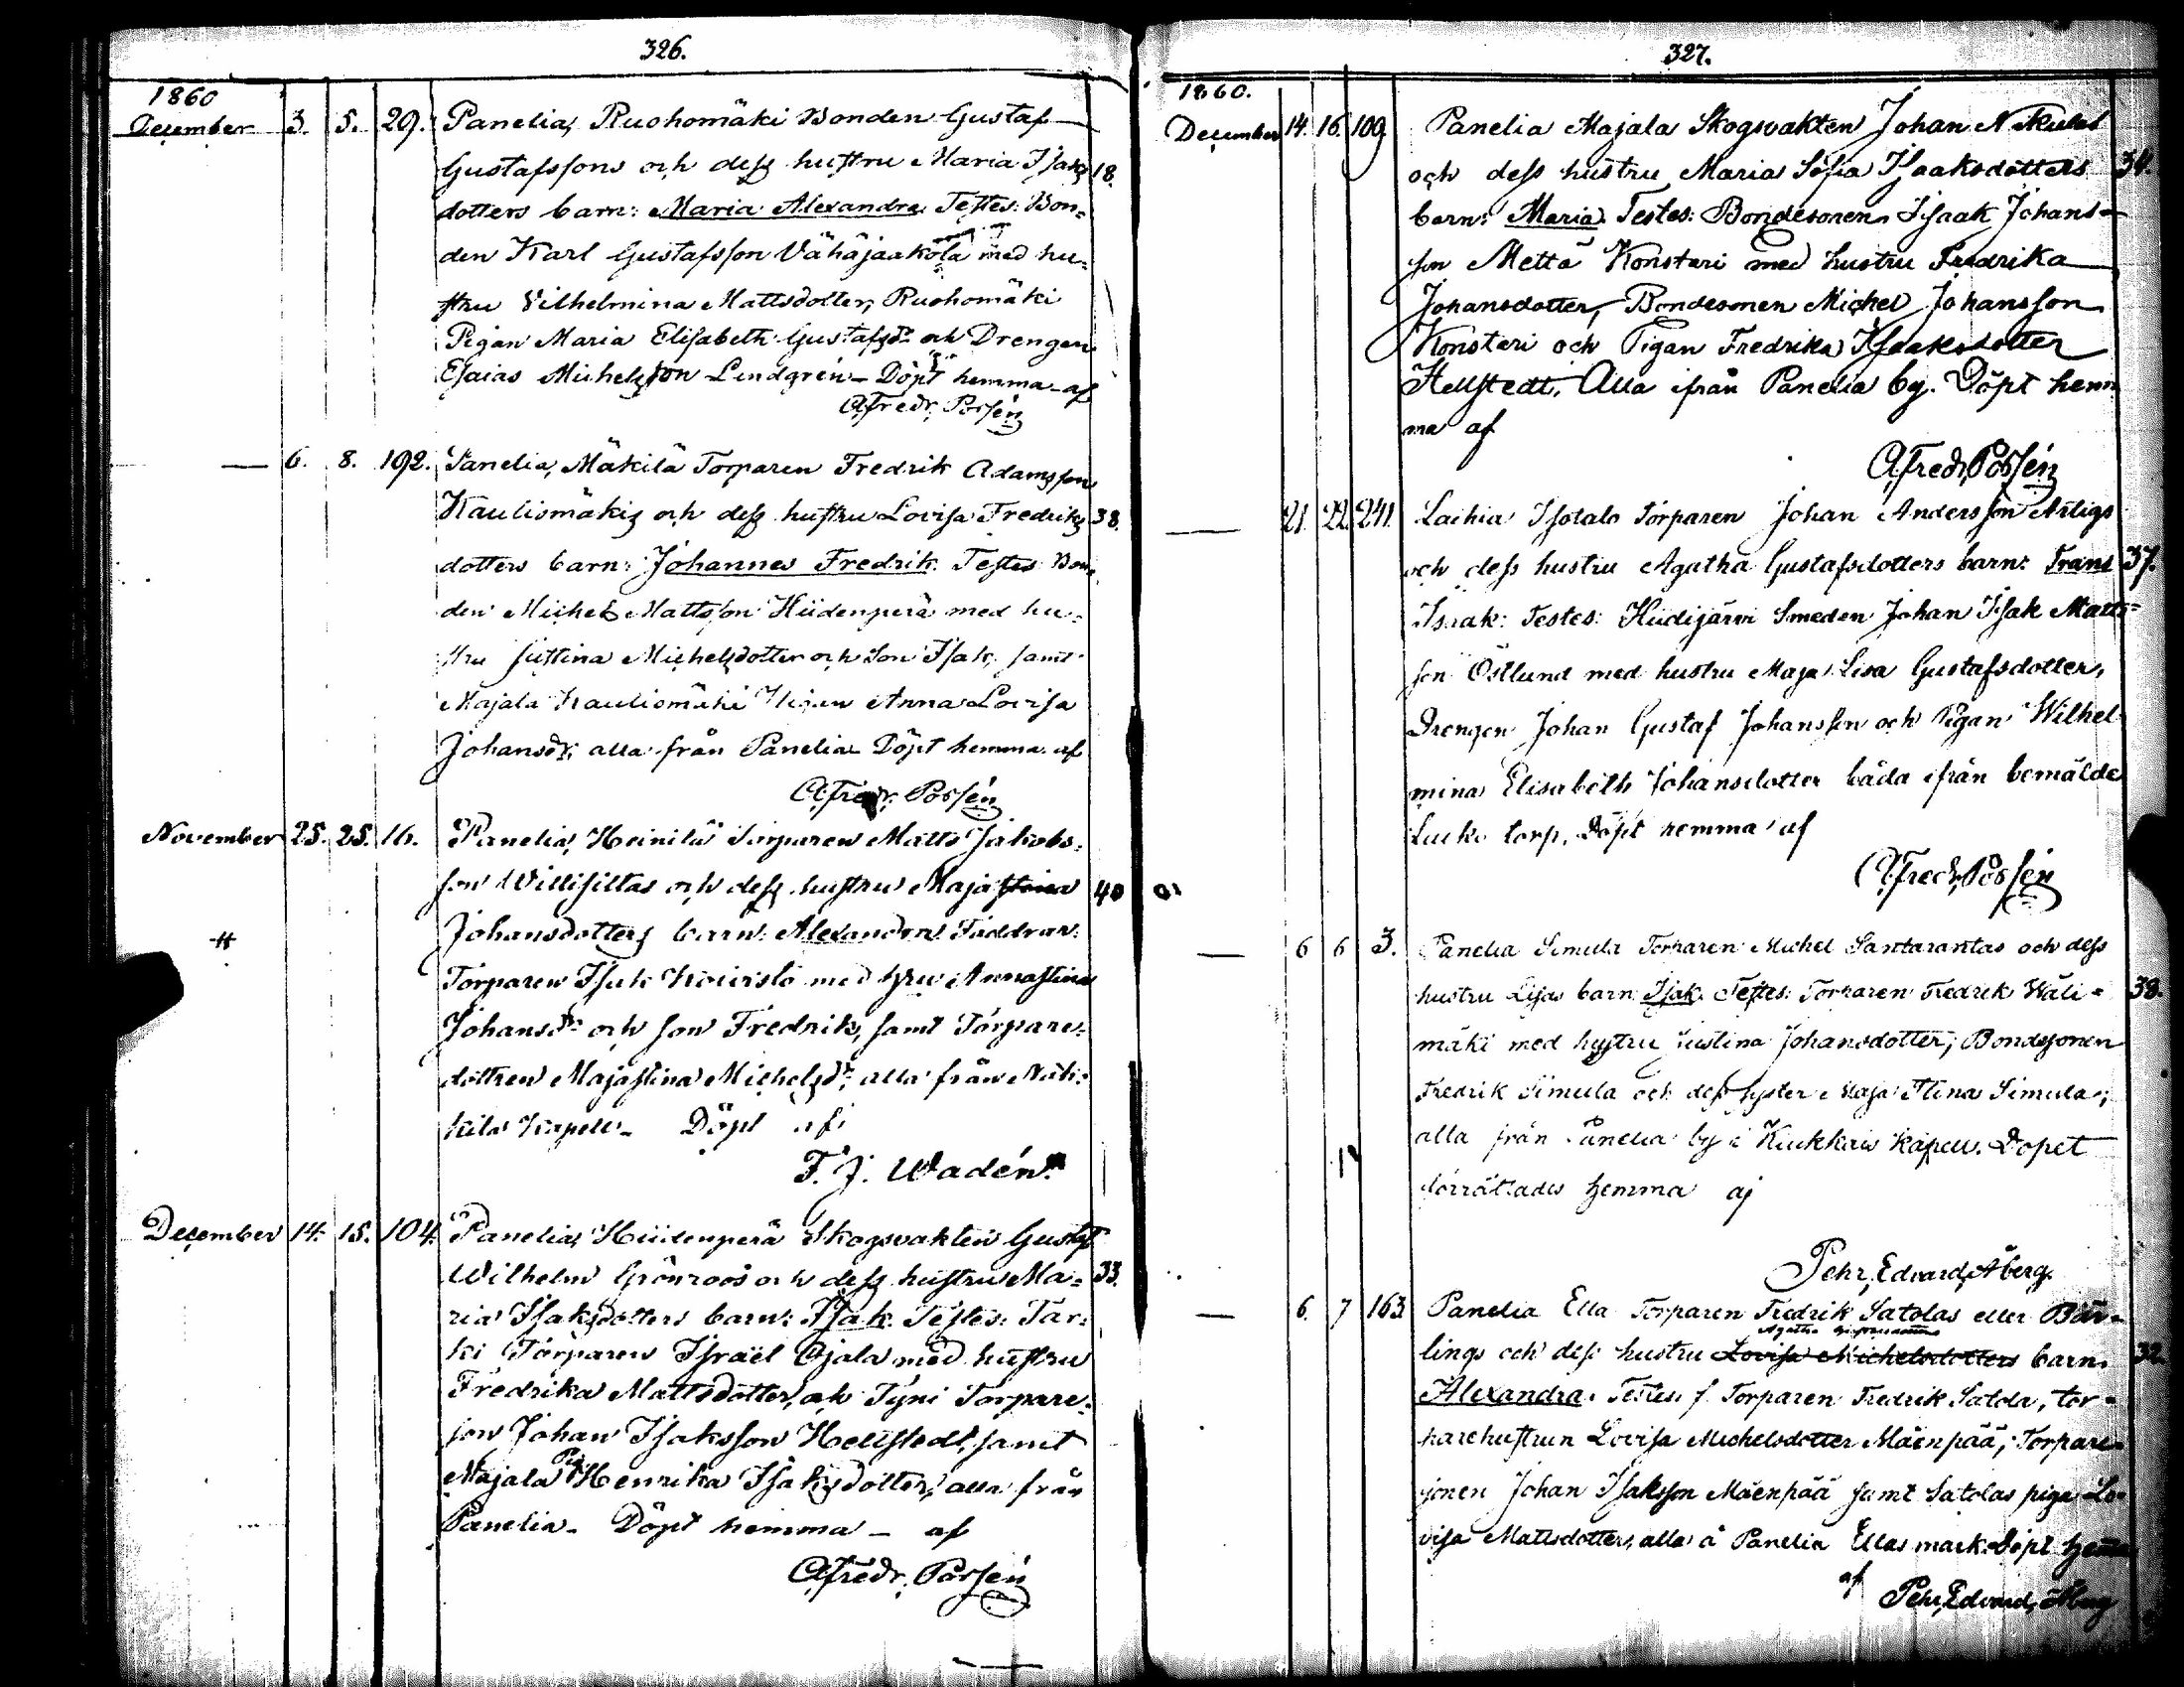 326.
1860
December 3. 5. 29. Panelia, Ruohomäki Bonden Gustaf
Gustafssons och dess hustru Maria Isaks 18.
dotters barn: Maria Alexandra Testes: Bon-
den Karl Gustafsson Vähäjaakola med hu-
stru Vilhelmina Mattsdotter, Ruohomäki
Pigan Maria Elisabeth Gustafsdr och Drengen
Esaias Michelsson Lindgrén - Döpt hemma af
A. Fredr. Possén
— 6. 8. 192. Panelia, Mäkilä Torparen Fredrik Adamsson
Kauliomäkis och dess hustru Lovisa Fredriks 38.
dotters barn: Johannes Fredrik. Testes Bon-
den Michel Mattsson Hiidenperä med hu-
stru Justina Michelsdotter och Son Isak, samt
Majala Kauliomäki Pigan Anna Lovisa
Johansdr, alla från Panelia Döpt hemma af
A. Fredr. Possén
November 25. 25. 16. Panelia, Heinilä Torparen Matts Jakobs-
son Willisillas och dess hustru Maja Stina 40
Johansdotters barn: Alexandra Faddrar:
Torparen Isak med hru Annastina
Johansdr och son Fredrik, samt Torpare-
dottren Majastina Michelsdr, alla från
kila Kapell - Döpt af
F. J. Wadén.
December 14. 15. 104. Panelia, Hiidenperä Skogsvakten Gustaf
Wilhelm Grönroos och dess hustru Ma- 33.
ria Isaksdotters barn: Isak. Testes: Tar-
ki Torparen Israël Ojala med hustru
Fredrika Mattsdotter, och Tyni Torpare-
son Johan Isaksson Hellstedt, samt
Majala Pig. Henrika Isaksdotter, alla från
Panelia - Döpt hemma - af
A. Fredr. Possén
327.
1860.
December 14. 16. 109 Panelia Majala Skogsvakten Johan
och dess hustru Maria Sofia Isaaksdotters 34.
barn: Maria. Testes: Bondesonen Isaak Johans-
son Mettä Konstari med hustru Fredrika
Johansdotter, Bondesonen Michel Johansson
Konstari och Pigan Fredrika Isaaksdotter
Hellstedt, Alla ifrån Panelia by. Döpt hem-
ma af
A. Fredr. Possén
— 21. 22. 241. Laihia Isotalo Torparen Johan Andersson Ärligs
och dess hustru Agatha Gustafsdotters barn: Frans 37.
Isaak: Testes: Hiidijärvi Smeden Johan Isak Matts-
son Östlund med hustru Maja Lisa Gustafsdotter,
Drengen Johan Gustaf Johansson och Pigan Wilhel-
mina Elisabeth Johansdotter båda ifrån bemälde
torp. Döpt hemma af
A. Fredr. Possén
— 6 6 3. Panelia Simula Torparen Michel Santarantas och dess
hustru Lisas barn: Isak. Testes: Torparen Fredrik Wäli- 38.
mäki med hustru Justina Johansdotter, Bondesonen
Fredrik Simula och dess syster Maja Stina Simula,
alla från Panelia by i Kiukkais kapell. Dopet
förrättades hemma af
Pehr Edvard Åberg.
— 6. 7 163 Panelia Ella Torparen Fredrik Satolas eller Bär-
Agatha
lings och dess hustru Lovisa Michelsdotters barn 32
Alexandra. Testes f. Torparen Fredrik Satola, tor-
parehustrun Lovisa Michelsdotter Mäenpää, Torpare-
sonen Johan Isaksson Mäenpää samt Satolas piga Lo-
visa Mattsdotter, alla å Panelia Ellas mark. Döpt hemma
af Pehr Edvard Åberg